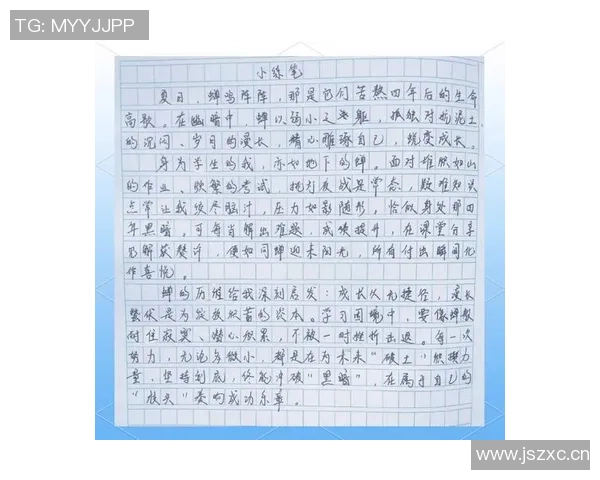 TG: MYYJJPP
小练笔
夏日，蝉鸣阵阵，那是它们苦熬四年后的生命
高歌。在幽暗中，蝉以弱小之躯，孤独对抗泥土
的沉闷、岁月的漫长，精心雕琢自己，蜕变成长。
身为学生的我，亦如地下的蝉。面对堆积如山
的作业、频繁的考试，挑灯夜战是常态，疑难知识
点常让我绞尽脑汁，压力如影随形，恰似身处那四
年黑暗。可每当解出难题，成绩提升，在课堂分享
见解获赞许，便如同蝉迎来阳光，所有付出瞬间化
作喜悦。
蝉的历程给我深刻启发：成长从无捷径，漫长
蛰伏是为发积蓄的资本。学习困境中，要像蝉般
耐住寂寞、潜心积累，不被一时挫折击退。每一次
努力，无论多微小，都是在为未来“破土”积攒力
量，坚持到底，终能冲破“黑暗”，在属于自己的
“枝头”奏响成功乐章。
www.jszxc.cn